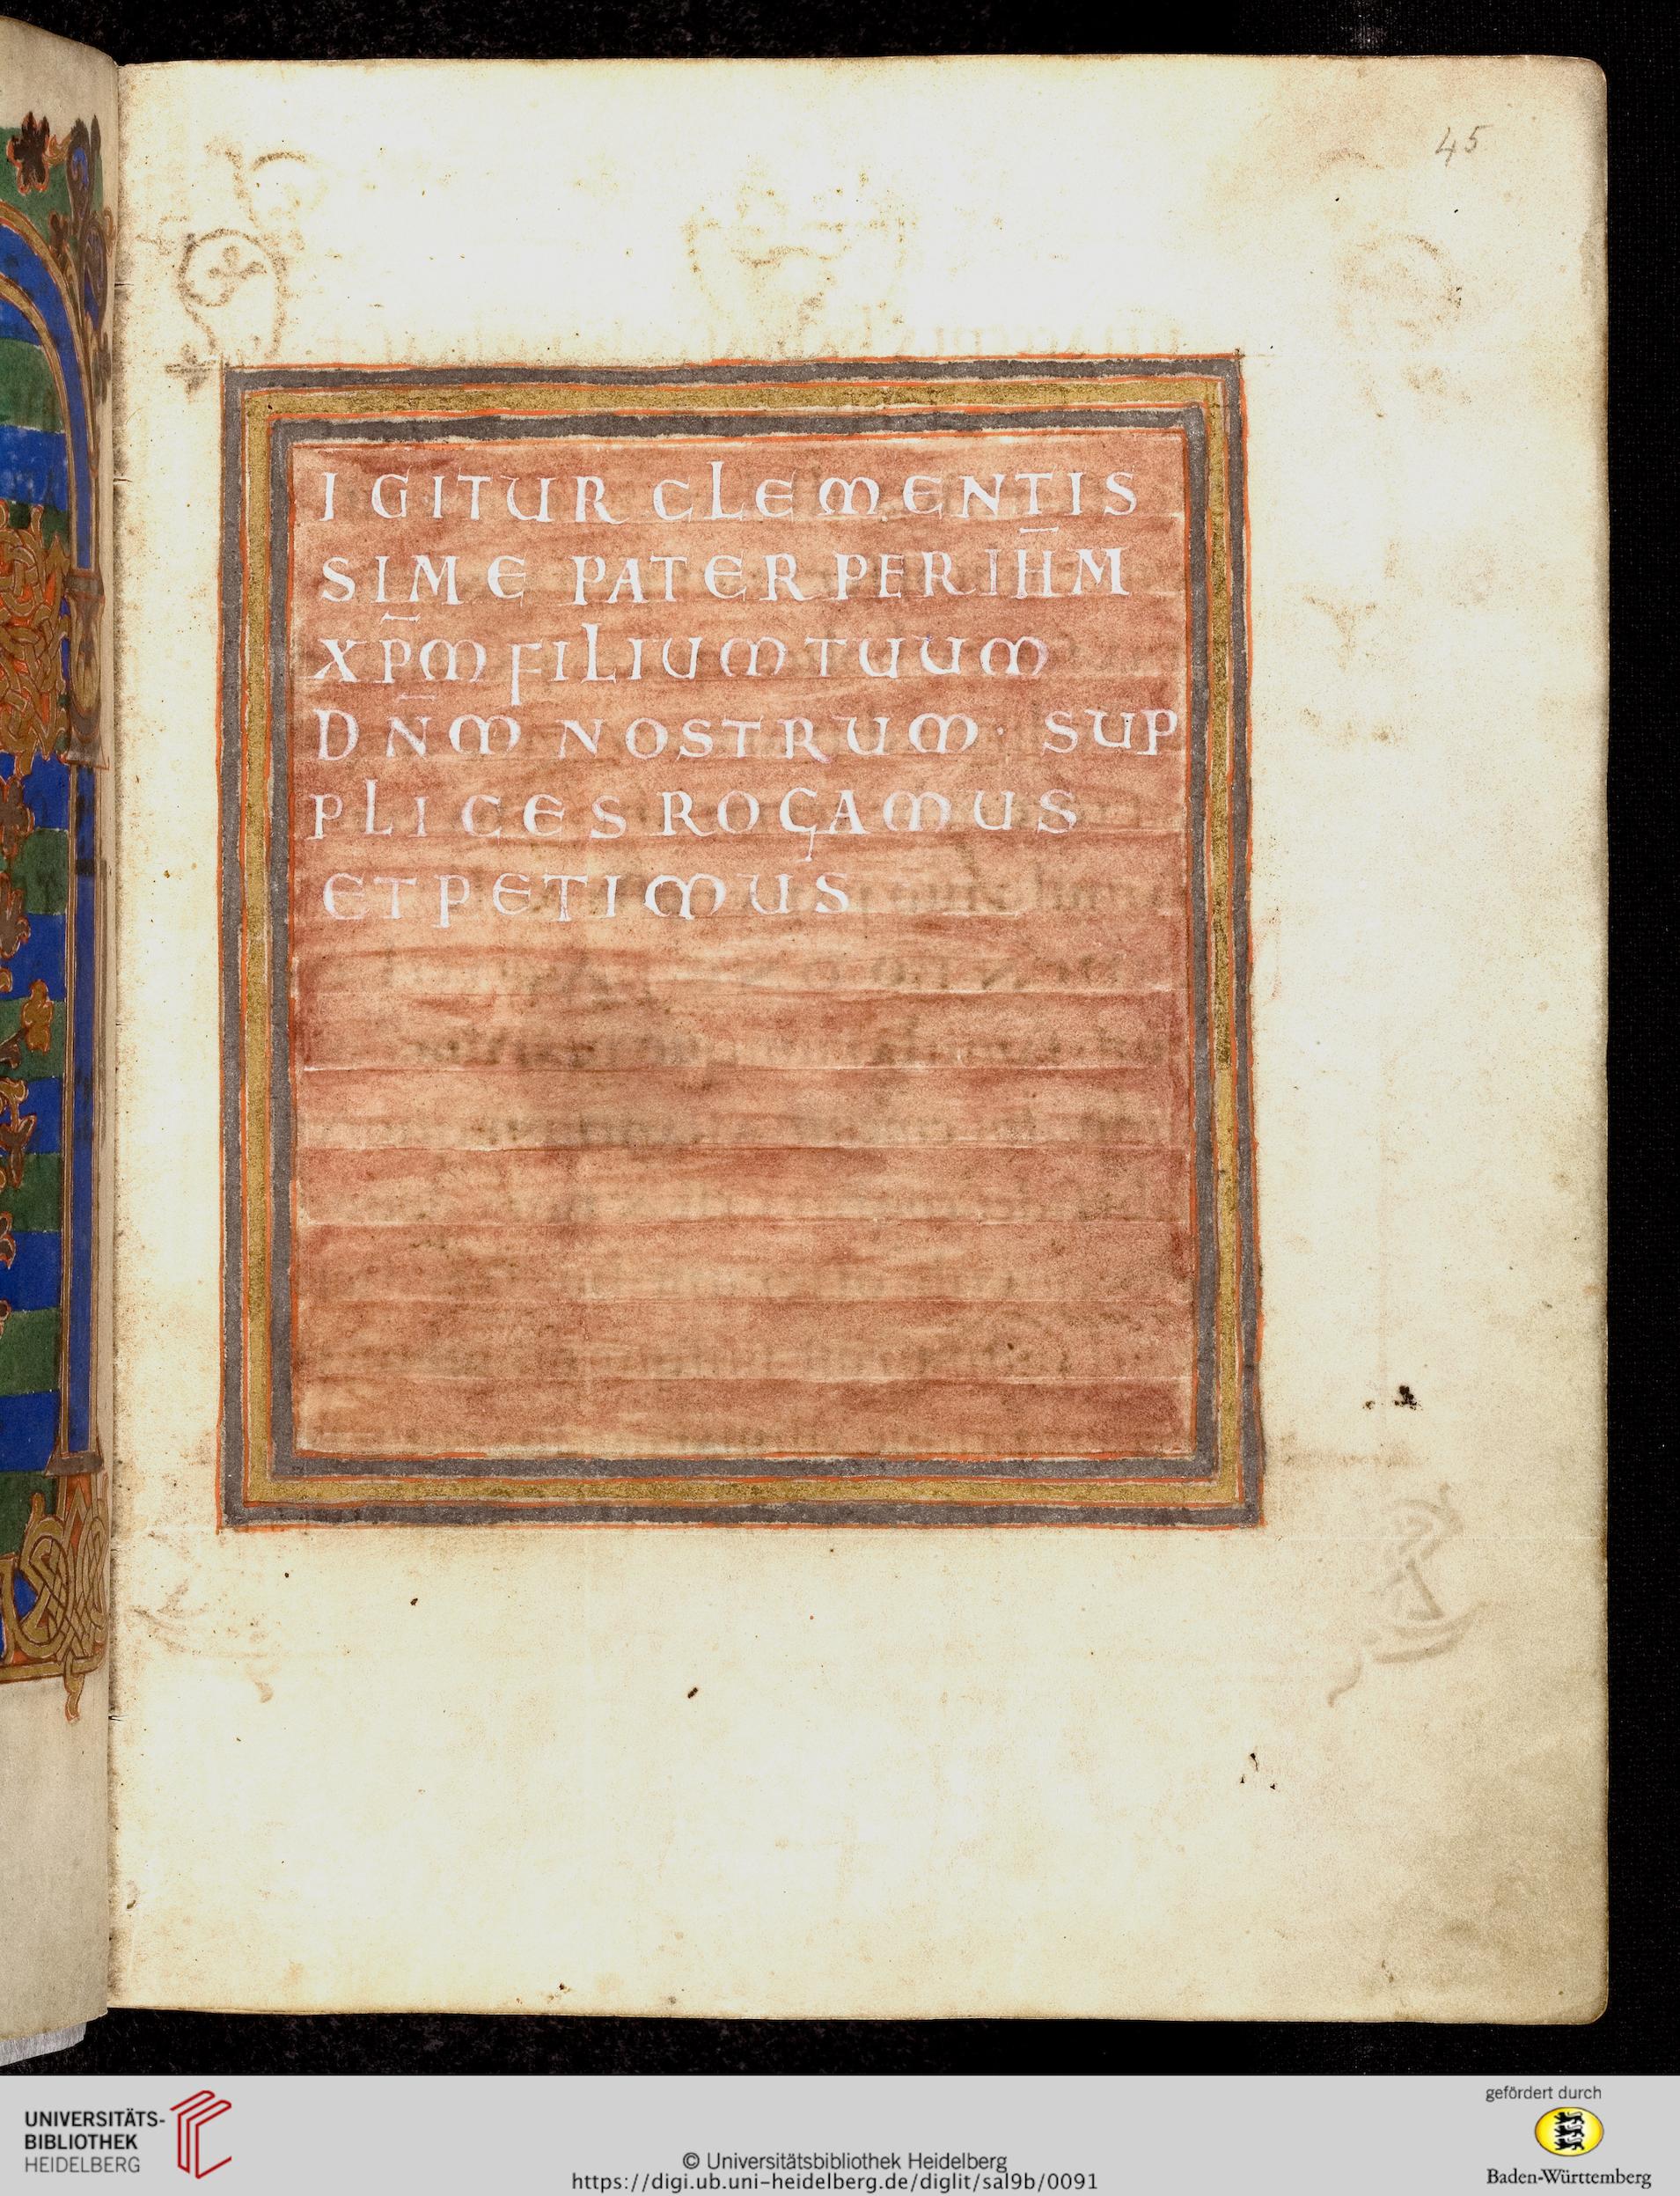 45
IGITUR CLEMENTIS
SIME PATER PER IH̅M
XP̅M FILIUM TUUM
DN̅M NOSTRUM · SUP
PLICES ROGAMUS
ET PETIMUS
UNIVERSITÄTS-
BIBLIOTHEK
HEIDELBERG
© Universitätsbibliothek Heidelberg
https://digi.ub.uni-heidelberg.de/diglit/sal9b/0091
gefördert durch
Baden-Württemberg